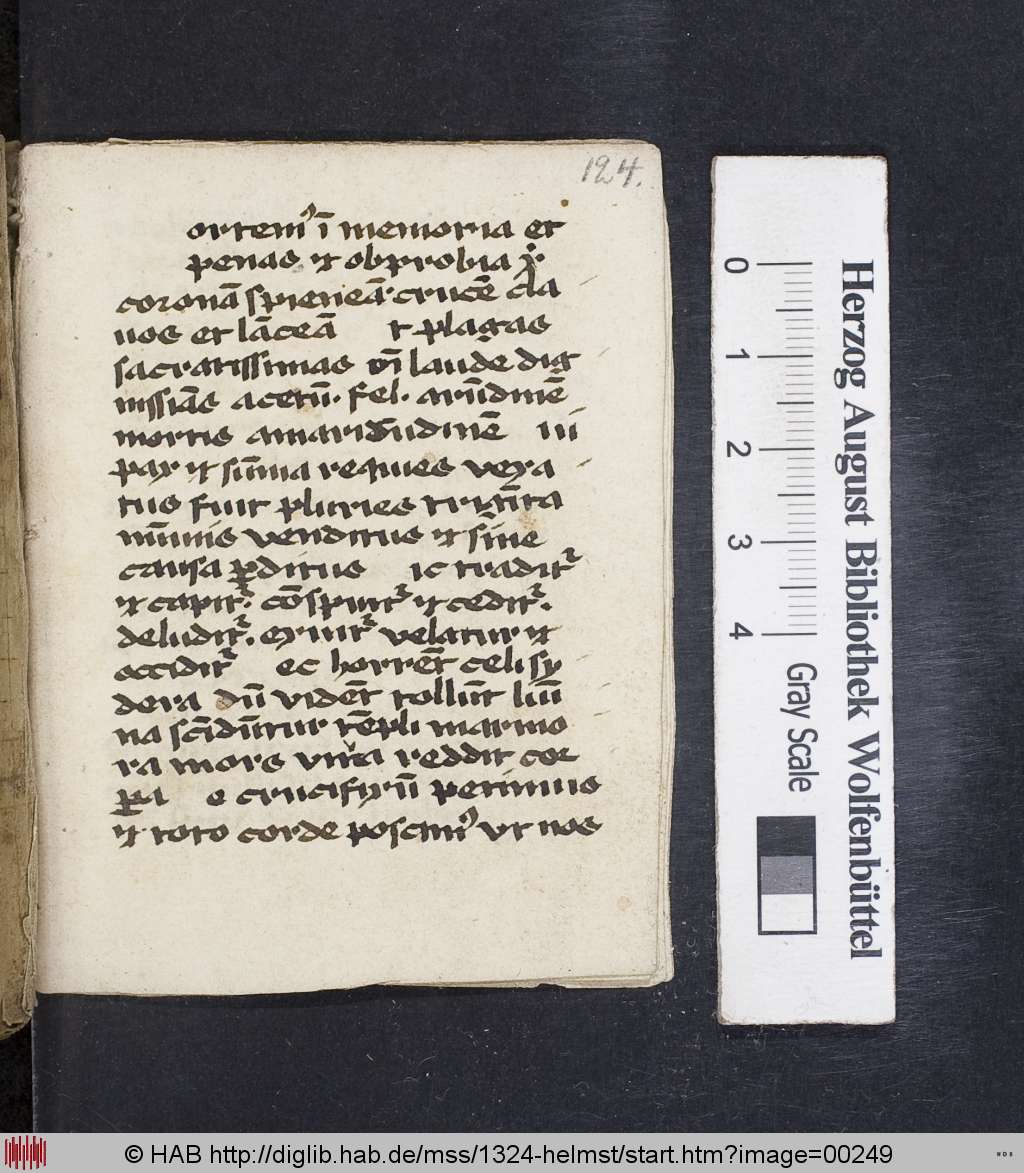 124.
ortemꝰ ī memoria et
penas ⁊ obprobia xⁱ·
coronā spieneā· crucē cla
uos et lāceā t plagas
sacratissimas oī laude dig
nissiās acetū· fel· arūdinē
mortis amaritudinē
pax ⁊ sūma requies vexa
tus fuit pluries trigīta
nūmis venditus ⁊ sine
causa ꝑditus ic tradit᷑
⁊ capit᷑· cōspuit᷑ ⁊ cedit᷑·
deludit᷑· exuit᷑ velatur ⁊
occidit᷑ ec horrēt celi sy
dera dū vidēt tollūt lūī
na scīdūtur tēpli marmo
ra mors vitā reddit cor
ꝑa e crucifixū petimus
⁊ toto corde poscimꝰ vt nos
0
1
2
3
4
Gray Scale
Herzog August Bibliothek Wolfenbüttel
© HAB http://diglib.hab.de/mss/1324-helmst/start.htm?image=00249